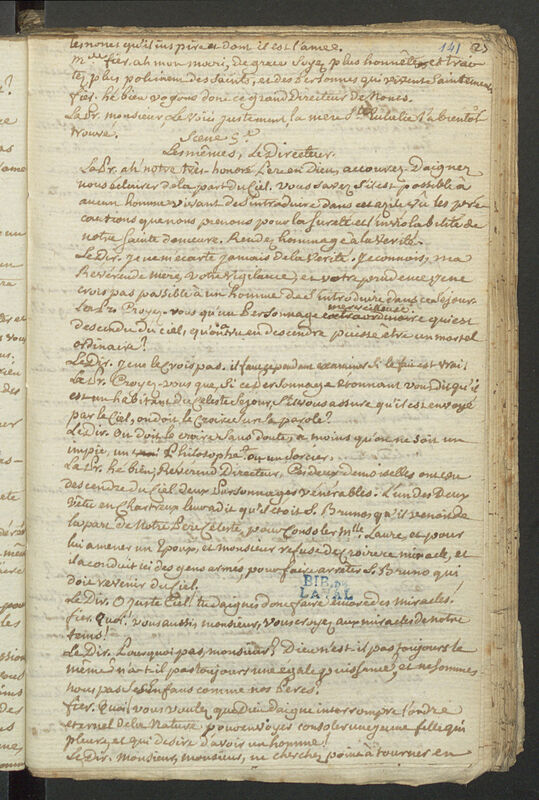 141
les nones qu'il inspire et dont il est l'amee.
Mde fier. ah mon mari, de grace soyez plus honnête, et trai-
tez plus poliment des Saints, et des personnes qui vivent Saintement.
fier. hé bien voyons donc ce grand Directeur de Nones.
La Pr. monsieur, Le vois justement, la mere Ste Eulalie l'a bientot
trouvé.
Scene 5.e
Les mêmes, Le Directeur.
La Pr. ah! notre très-honoré Pere en Dieu, accourez. Daignez
nous éclairer de la part du Ciel. vous savez s'il est possible à
aucun homme vivant de s'introduire dans cet azile, vû les pré-
cautions que nous prenons pour la sureté et l'inviolabilité de
notre Sainte demeure. Rendez hommage à la verité.
Le Dir. Je ne m'écarte jamais de la Verité. Je connois, ma
Reverende mere, votre vigilance, et votre prudence, et je ne
crois pas possible à un homme de s'introduire dans ce sejour.
La Pr. Croyez-vous qu'un Personnage extraordinaire qui est
merveilleux
descendu du ciel, qu'on a vu en descendre puisse être un mortel
ordinaire?
Le Dir. Je ne le crois pas. il faut cependant examiner si le fait est vrai.
La Pr. Croyez-vous que, si ce Personnage étonnant vous dit qu'il
est un habitant du Celeste Sejour, s'il vous assure qu'il est envoyé
par le Ciel, on doit le croire sur la parole?
Le Dir. On doit le croire sans doute, a moins qu'on ne soit un
impie, un Philosophe ou un Sorcier.
La Pr. hé bien, Reverend Directeur, Ces deux demoiselles ont vu
descendre du Ciel deux Personnages venerables. L'un des Deux
vêtu en Chartreux leur a dit qu'il étoit S. Bruno, qu'il venoit de
la part de Notre Pere Celeste, pour Consoler Mlle Laure, et pour
lui amener un Epoux, et monsieur refuse de croire ce miracle, et
il a conduit ici des gens armés pour faire arrêter S. Bruno qui
doit revenir du Ciel.
Le Dir. O juste Ciel! tu daignes donc faire encore des miracles!
fier. Quoi, vous aussi, monsieur, vous croyez aux miracles de notre
tems!
Le Dir. Pourquoi pas, monsieur? Dieu n'est-il pas toujours le
même? n'a-t-il pas toujours une égale puissance, et ne sommes
nous pas ses Enfans comme nos Peres.
fier. Quoi, vous voulez que Dieu daigne interrompre l'ordre
eternel de la Nature, pour envoyer consoler une jeune fille qui
pleure, et qui desire d'avoir un homme!
Le Dir. Monsieur, monsieur, ne cherchez point à tourner en
BIB. DE
LAVAL